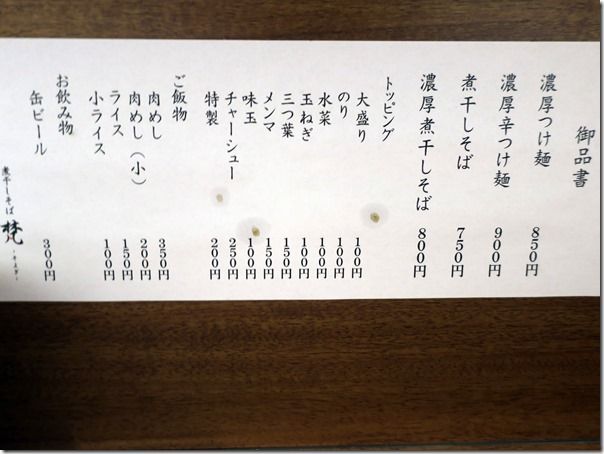 御品書
濃厚つけ麺 850円
濃厚辛つけ麺 900円
煮干しそば 750円
濃厚煮干しそば 800円
トッピング
大盛り 100円
のり 100円
水菜 100円
玉ねぎ 100円
三つ葉 150円
メンマ 150円
味玉 100円
チャーシュー 250円
特製 200円
ご飯物
肉めし 350円
肉めし（小） 200円
ライス 150円
小ライス 100円
お飲み物
缶ビール 300円
煮干しそば 梵